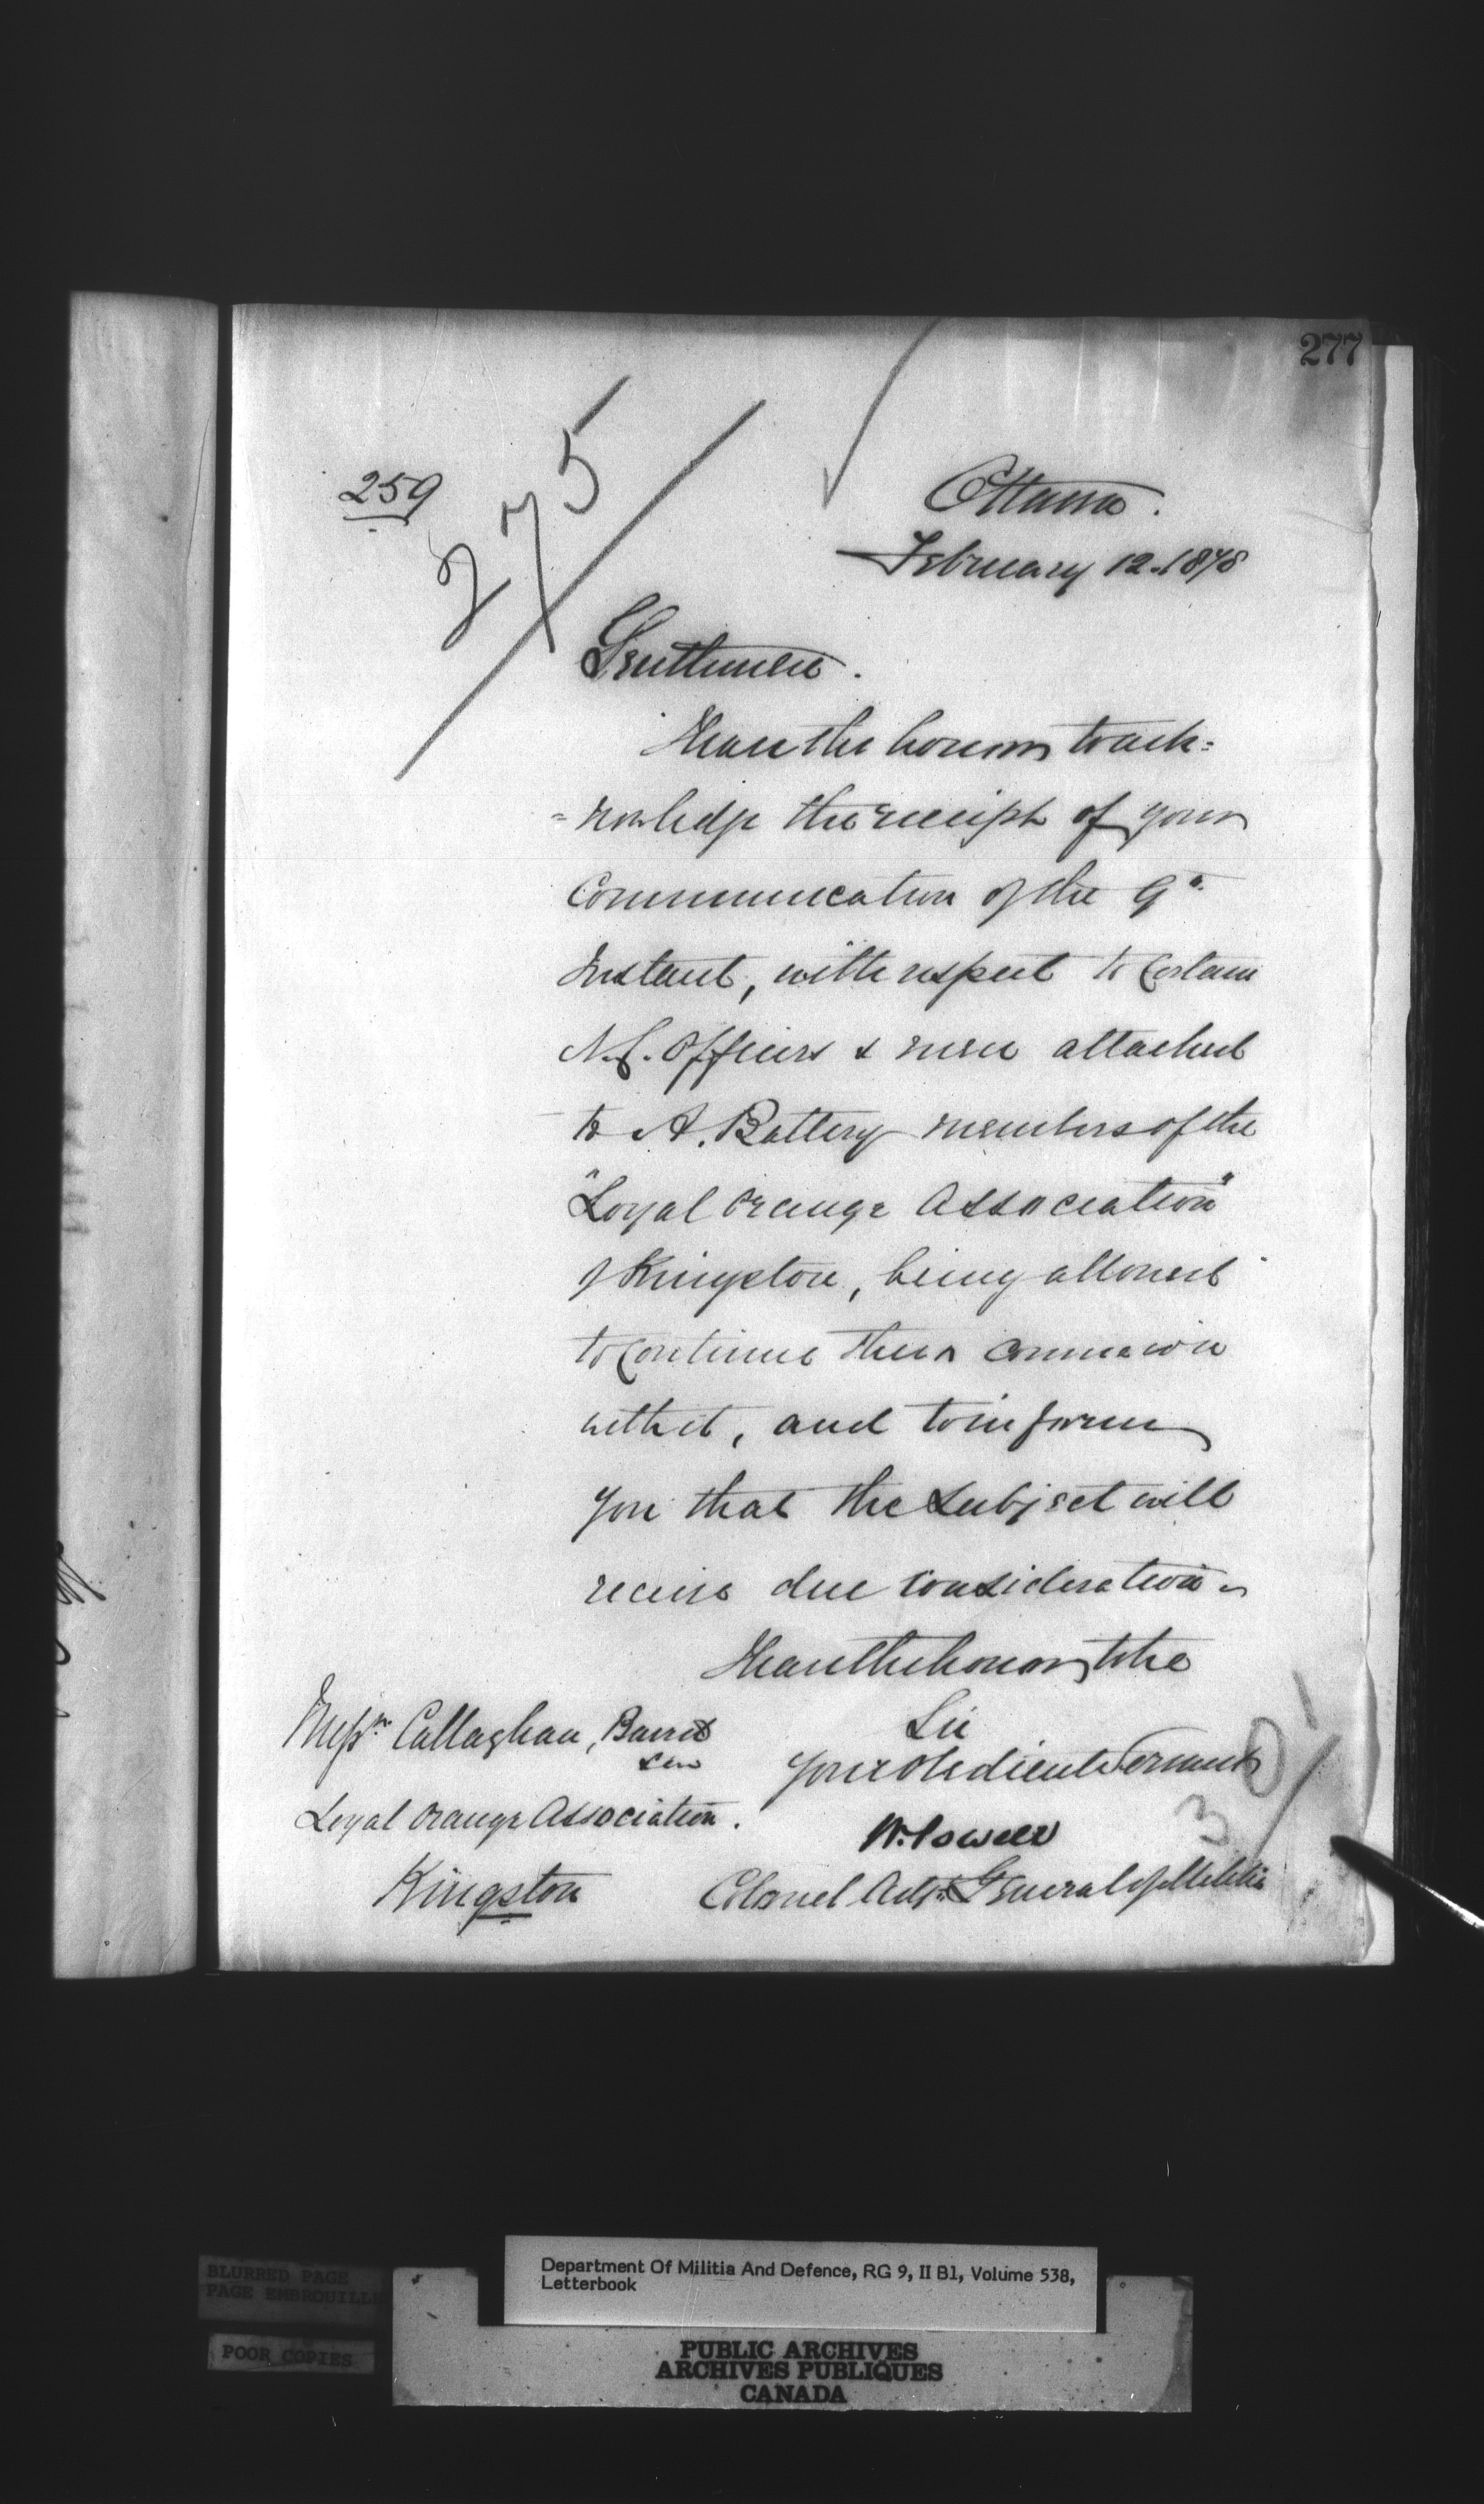 277
259
275
Ottawa.
February 12. 1878
Gentlemen.
I have the honour to ack=
=nowledge the receipt of your
Communication of the 9th
Instant, with respect to Certain
N.C. Officers & men attached
to A. Battery members of the
"Loyal Orange Association"
of Kingston, being allowed
to Continue their connexion
with it, and to inform
you that the subject will
receive due consideration.
I have the honor to be
Sir
Your Obedient Servant
W. Powell
Colonel Adjt. General of Militia
Messrs Callaghan,
Loyal Orange Association.
Kingston
30/
BLURRED PAGE
PAGE EMBROUILLE
POOR COPIES
Department Of Militia And Defence, RG 9, II B1, Volume 538,
Letterbook
PUBLIC ARCHIVES
ARCHIVES PUBLIQUES
CANADA